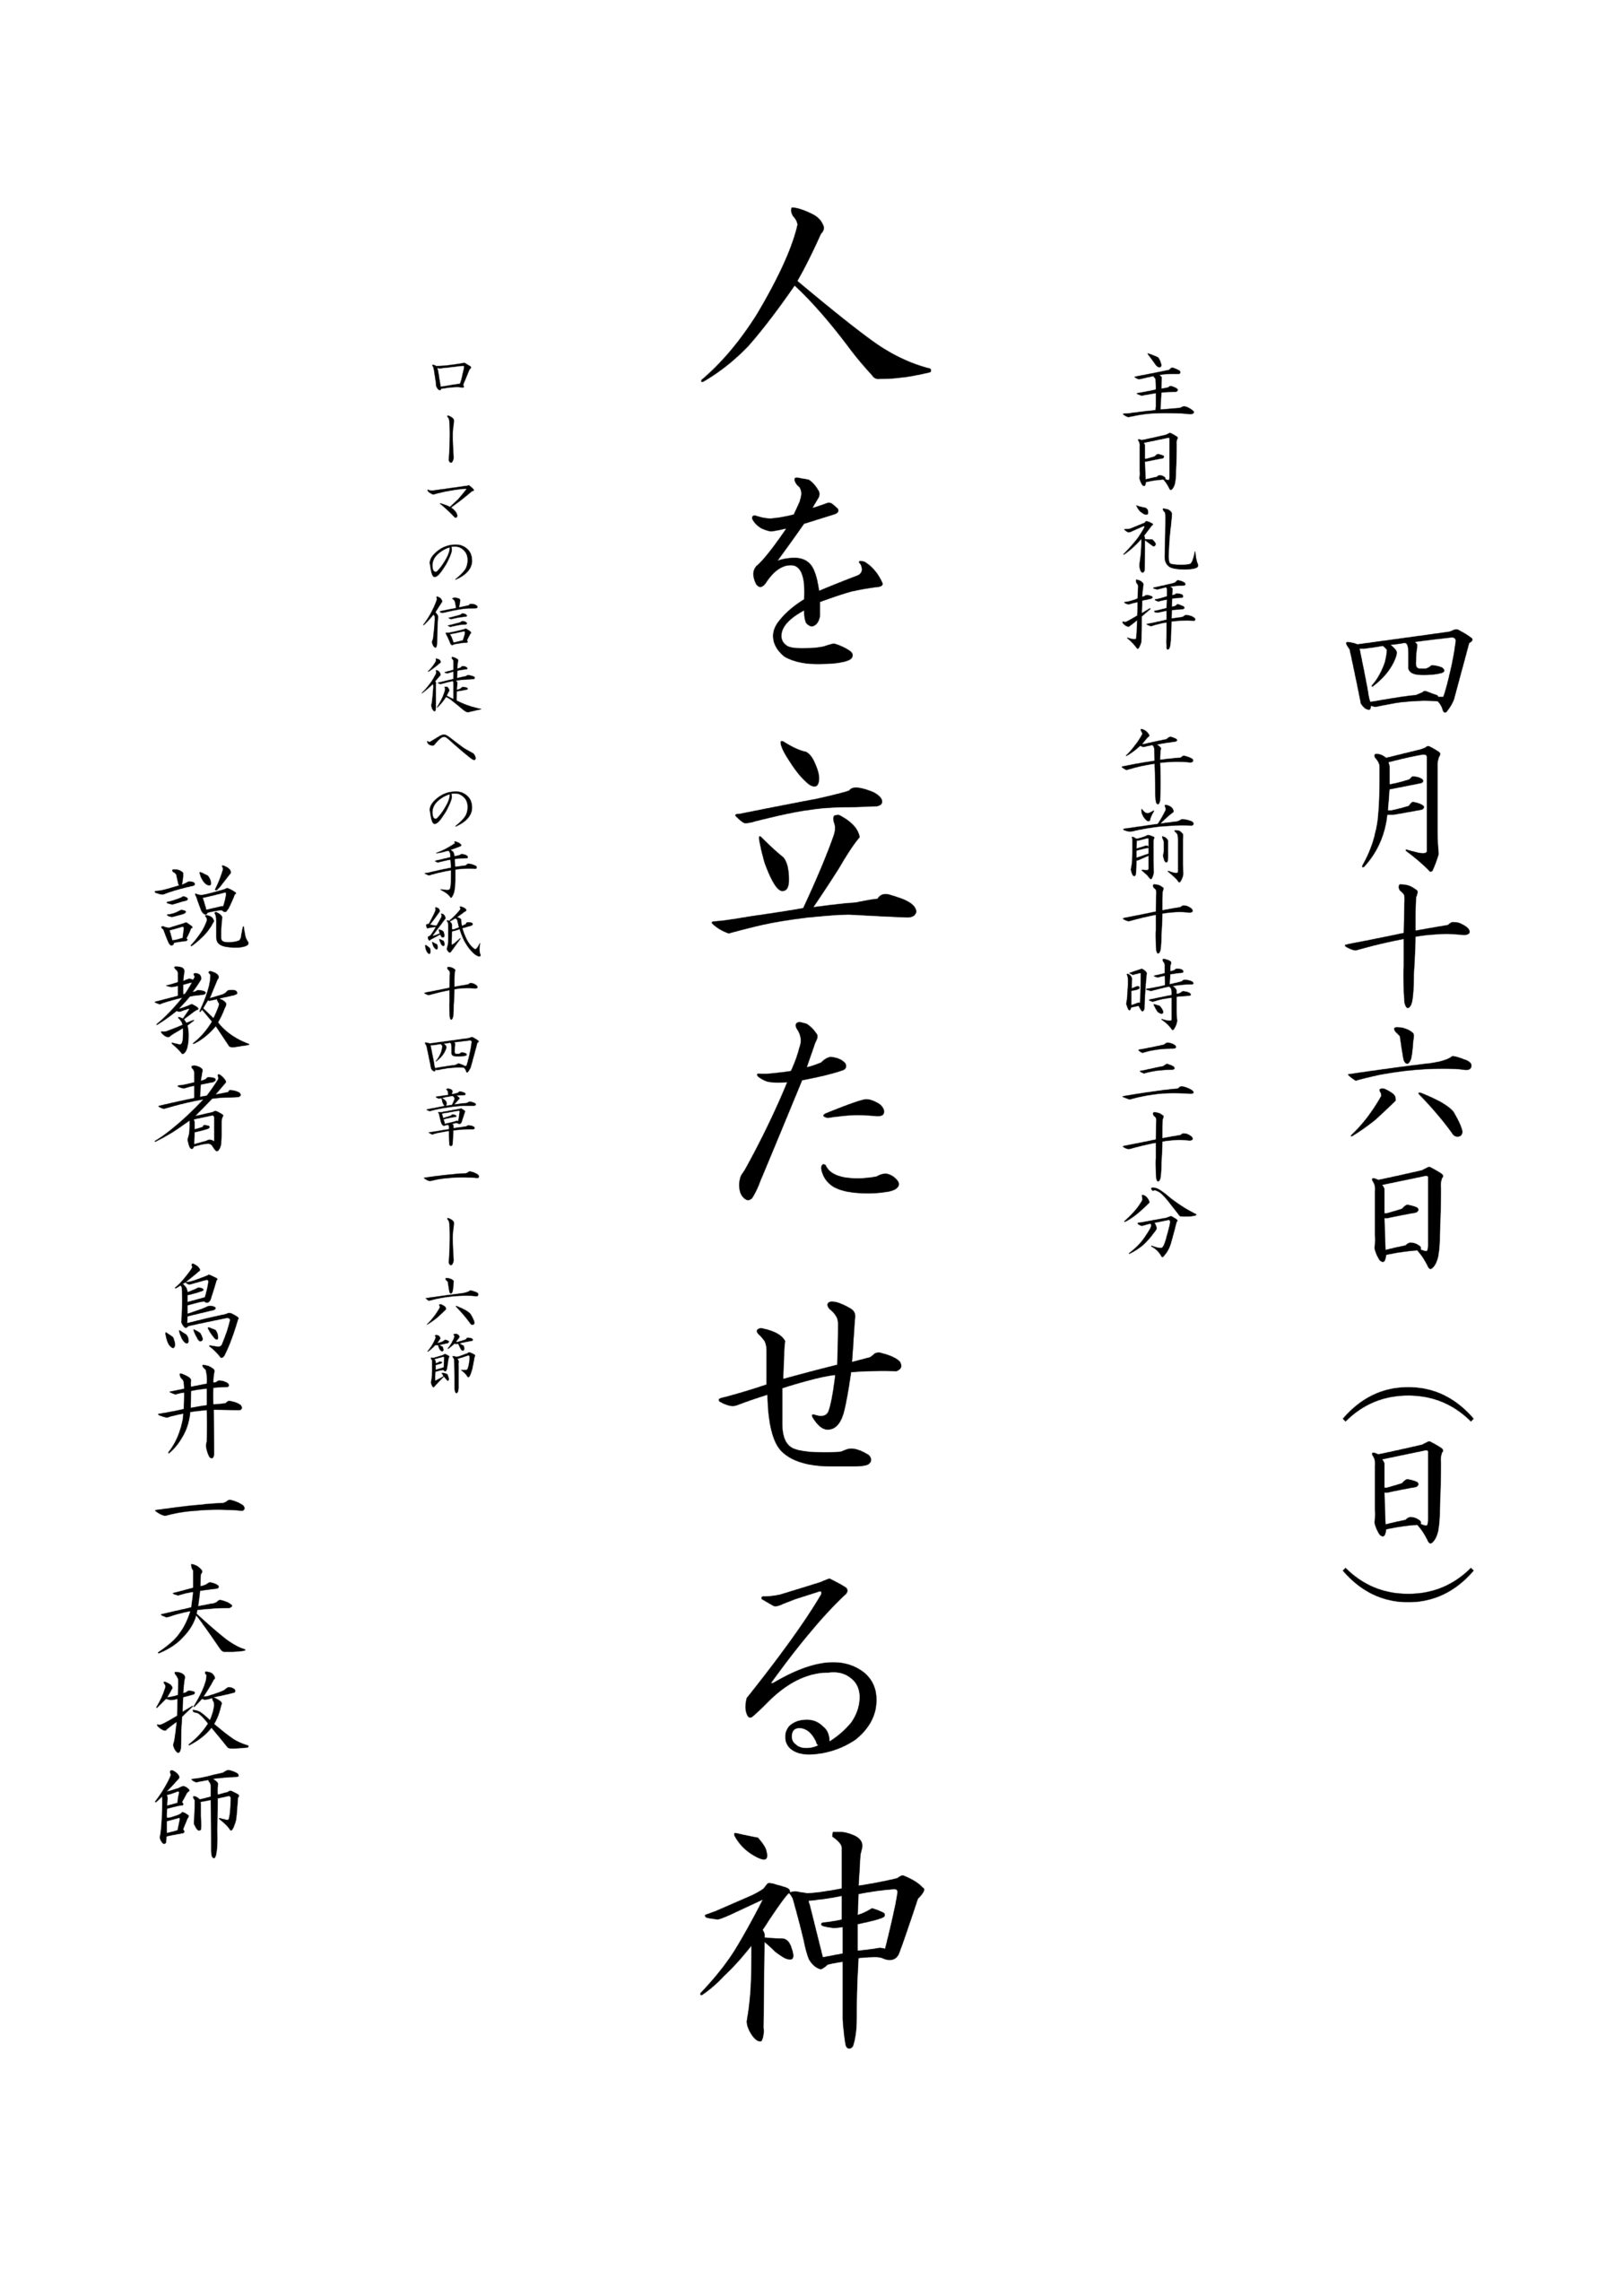 四月十六日(日)
主日礼拝 午前十時三十分
人を立たせる神
ローマの信徒への手紙十四章一ー六節
説教者 烏井一夫牧師